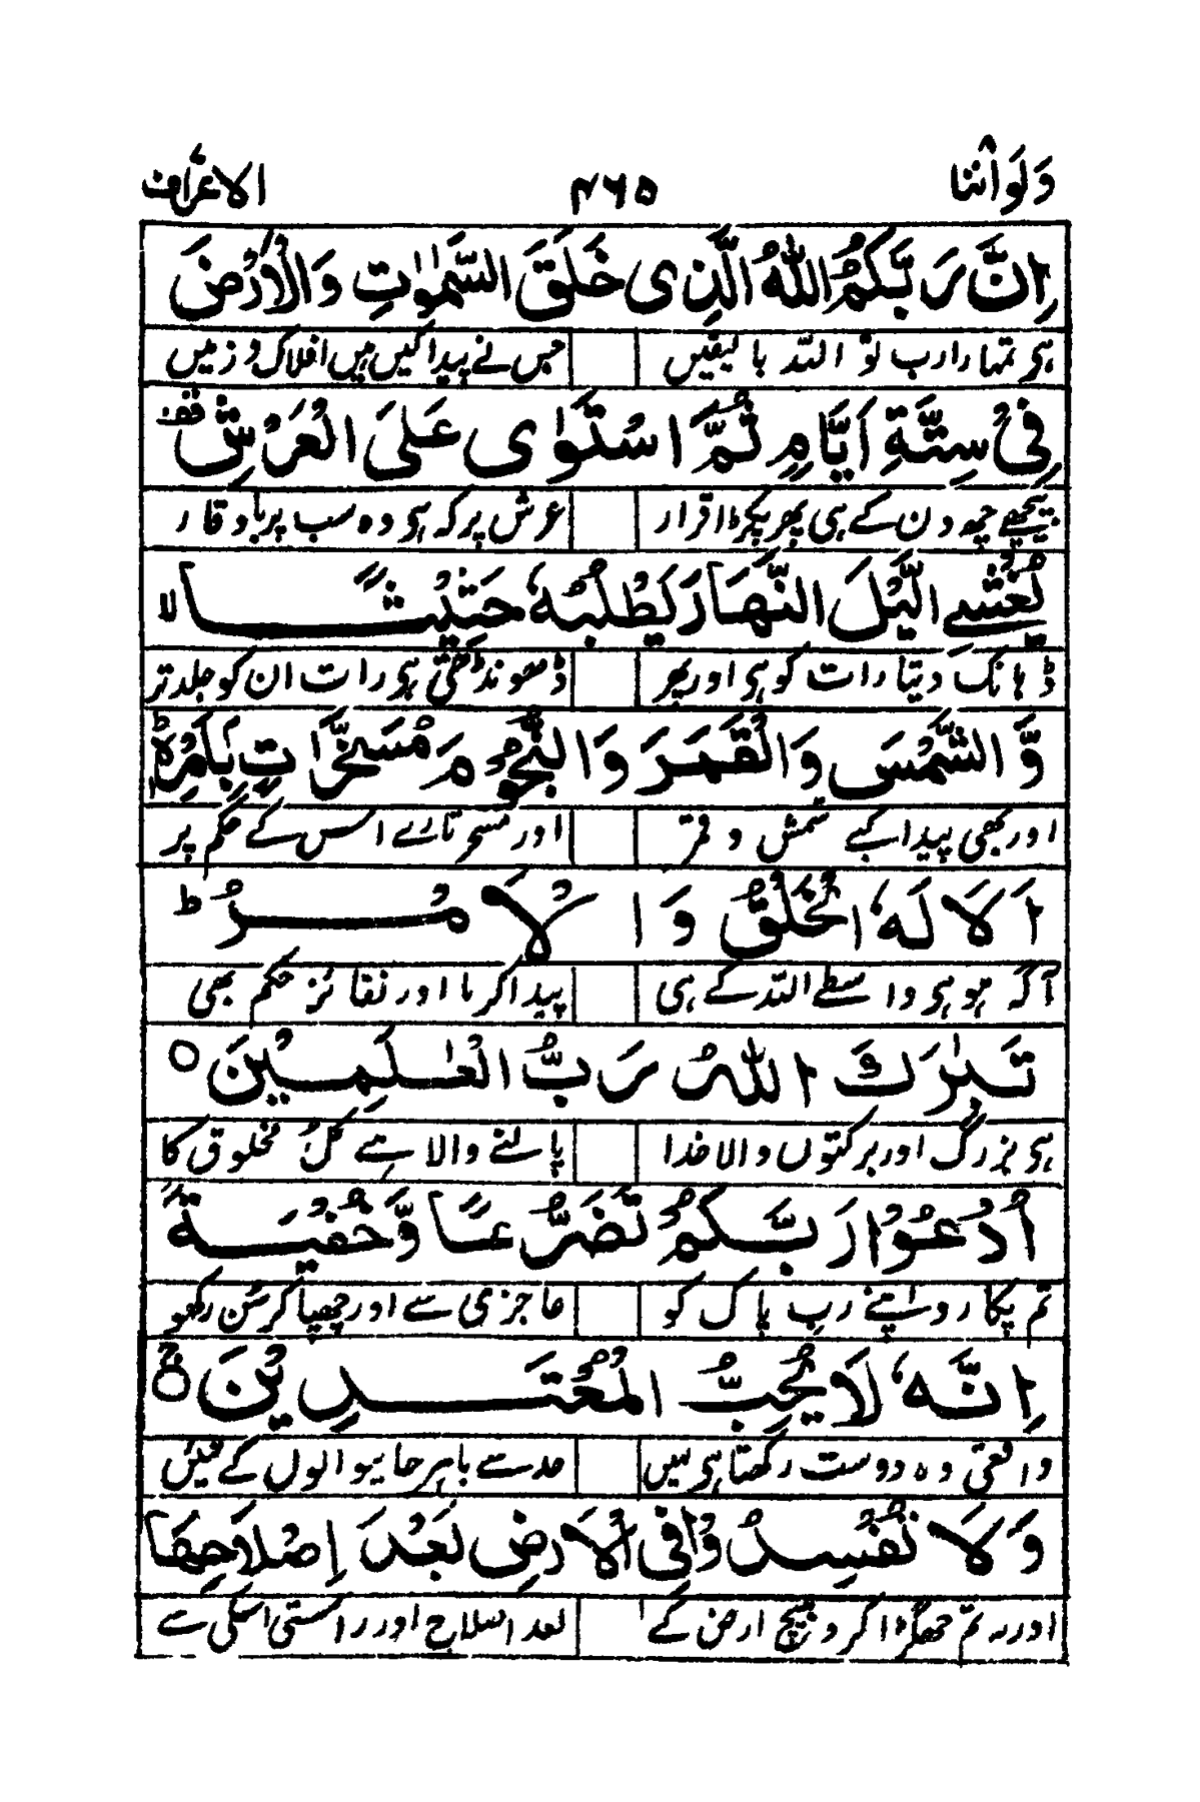 ولواننا ۸ ۴۶۵ الاعراف ۷
اِنَّ رَبَّكُمُ اللّٰهُ الَّذِی خَلَقَ السَّمٰوٰتِ وَالْاَرْضَ
ہی تمہارا رب تو اللہ بالیقیں جس نے پیدا کیں ہیں افلاک و زمیں
فِیْ سِتَّةِ اَیَّامٍ ثُمَّ اسْتَوٰی عَلَی الْعَرْشِ قف
پیچھے چھ دن کے ہی پھر پکڑا قرار عرش پر کہ ہی وہ سب پر باوقار
یُغْشِی الَّیْلَ النَّهَارَ یَطْلُبُهٗ حَثِیْثًا لا
ڈہانک دیتا رات کو ہی اور پھر ڈھونڈھتی ہی رات ان کو جلد تر
وَّالشَّمْسَ وَالْقَمَرَ وَالنُّجُوْمَ مُسَخَّرٰتٍ بِاَمْرِهٖ ط
اور بھی پیدا کیے شمش و قمر اور مسخر تارے اس کے حکم پر
اَلَا لَهُ الْخَلْقُ وَالْاَمْرُ ط
آگہ ہو ہی واسطے اللہ کے ہی پیدا کرنا اور نفائز حکم بھی
تَبٰرَكَ اللّٰهُ رَبُّ الْعٰلَمِیْنَ ○
ہی بزرگ اور برکتوں والا خدا پالنے والا ہے کل مخلوق کا
اُدْعُوْا رَبَّكُمْ تَضَرُّعًا وَّخُفْیَةً
تم پکارو اپنے رب پاک کو عاجزی سے اور چھپا کر سن رکھو
اِنَّهٗ لَا یُحِبُّ الْمُعْتَدِیْنَ ○
واقعی وہ دوست رکھتا ہی نہیں حد سے باہر جانیوالوں کے تئیں
وَلَا تُفْسِدُوْا فِی الْاَرْضِ بَعْدَ اِصْلَاحِهَا
اور نہ تم جھگڑا کرو بیچ ارض کے بعد اسلاح اور راستی اسکی سے